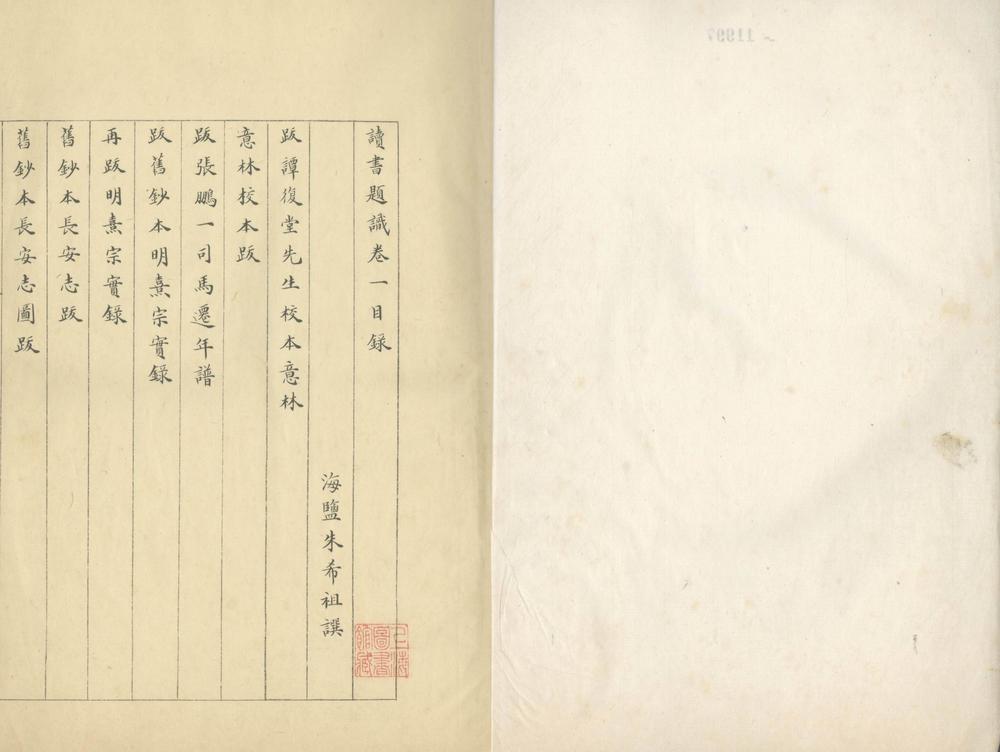 讀書題識卷一目錄
海鹽朱希祖譔
跋譚復堂先生校本意林
意林校本跋
跋張鵬一司馬遷年譜
跋舊鈔本明熹宗實錄
再跋明熹宗實錄
舊鈔本長安志跋
舊鈔本長安志圖跋
上海圖書館藏
11997